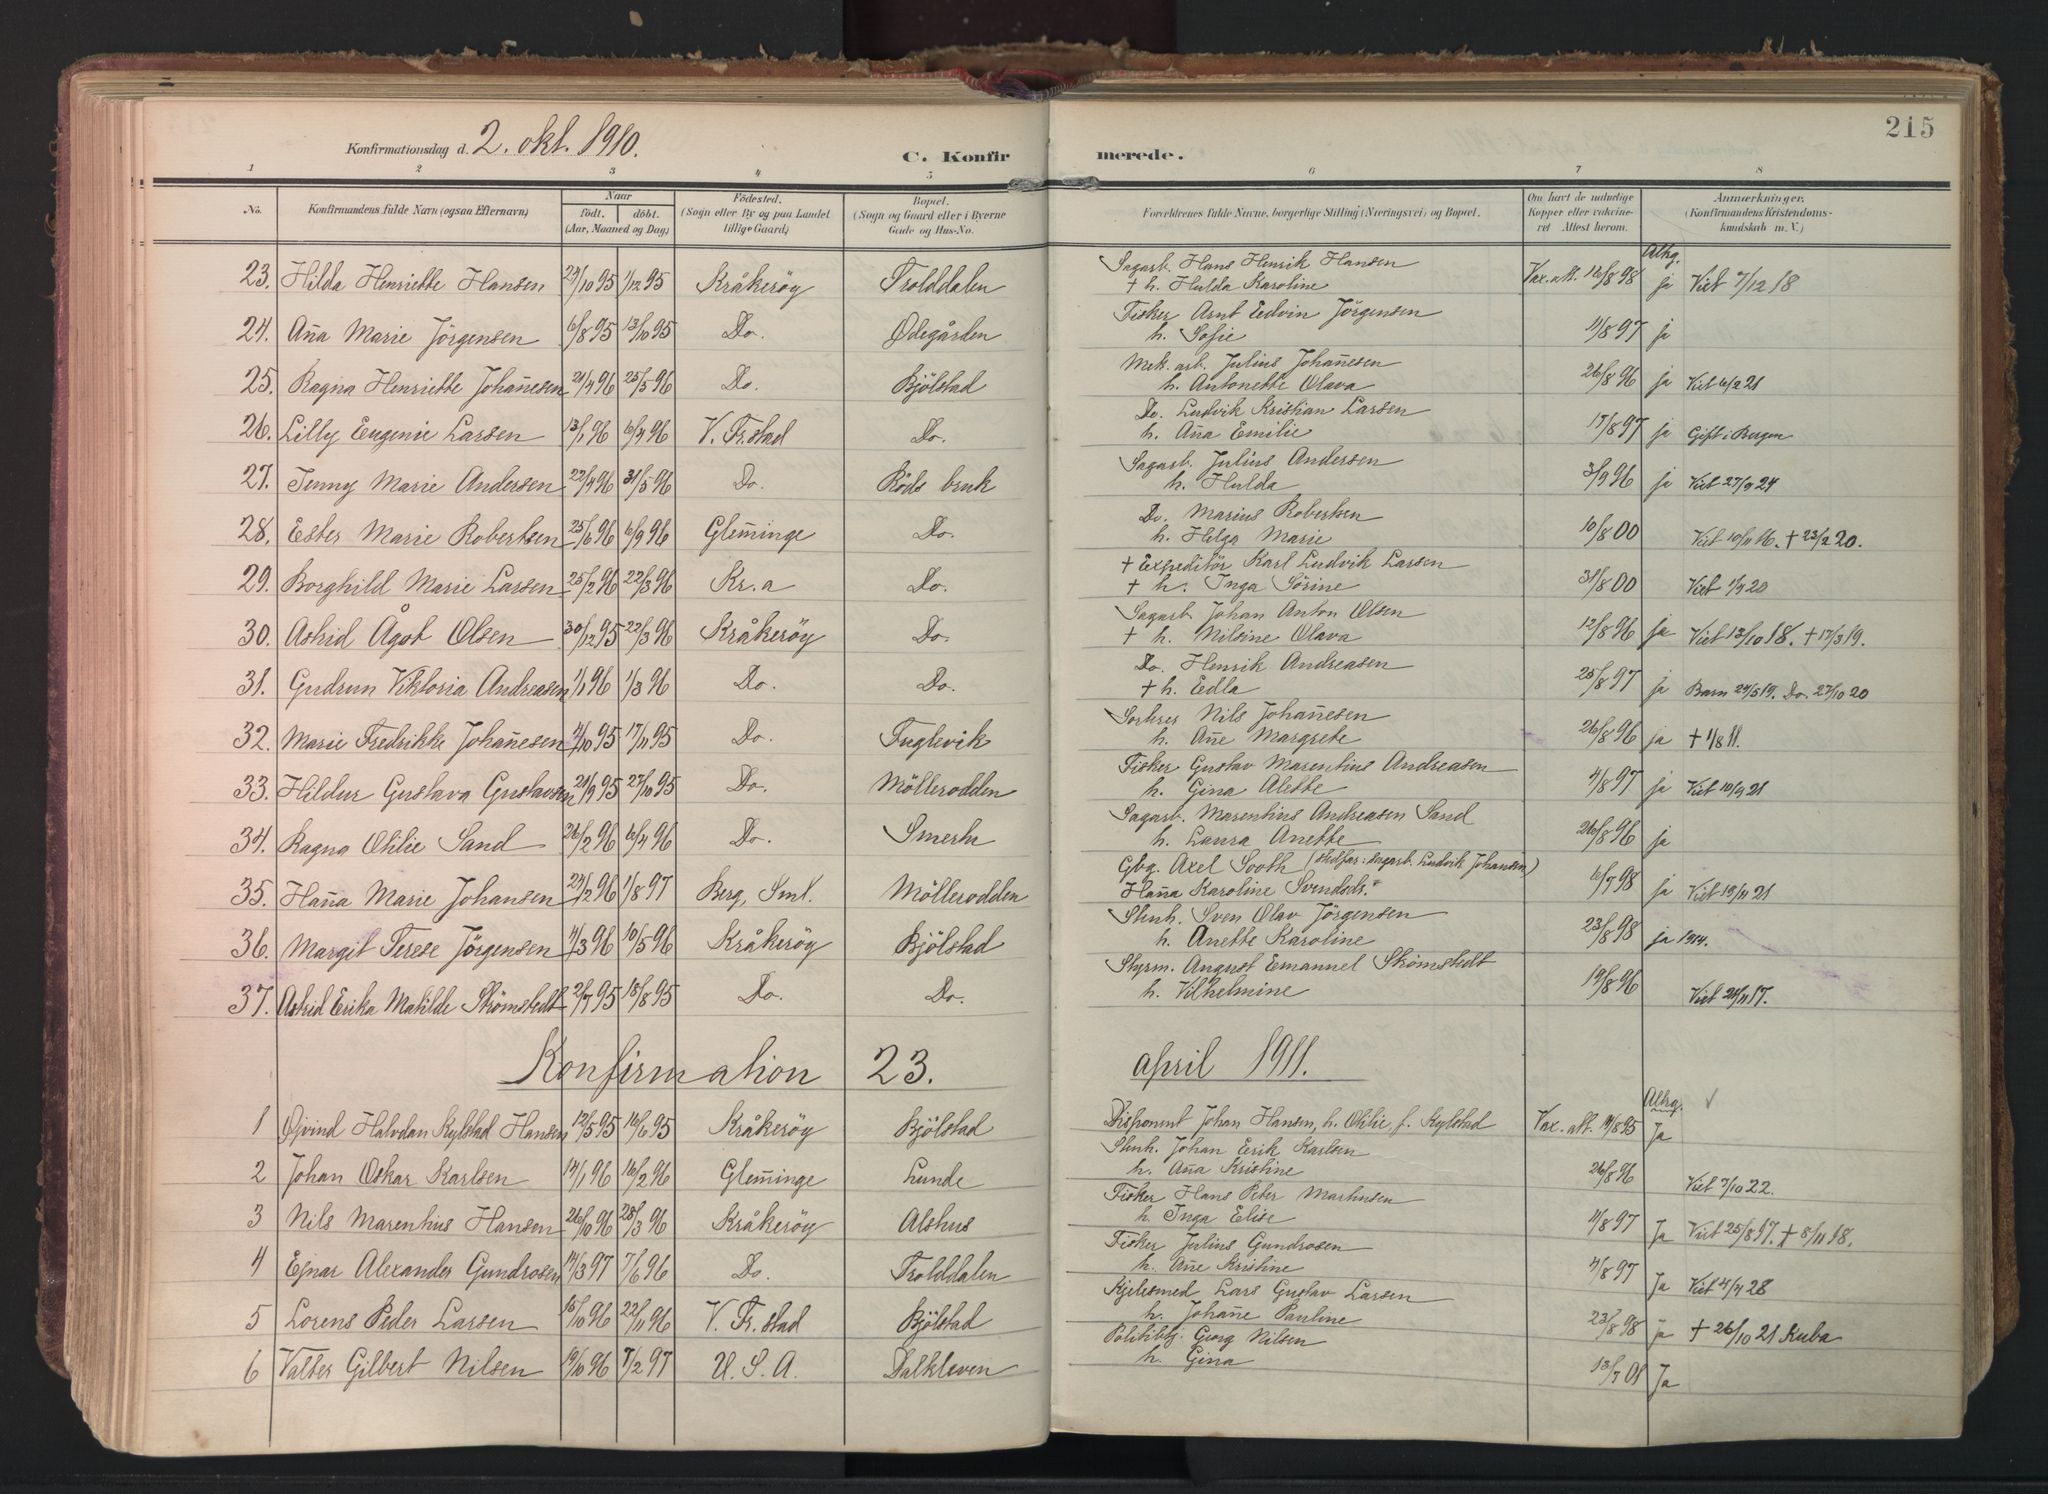 215
Konfirmationsdag d. 2. okt. 1910.
C. Konfirmerede.
1 2 3 4 5 6 7 8
No.
Konfirmandens fulde Navn (ogsaa Efternavn)
Naar
født. døbt.
(Aar, Maaned og Dag)
Fødested.
(Sogn eller By og paa Landet
tillige Gaard)
Bopæl.
(Sogn og Gaard eller i Byerne
Gade og Hus-No.
Forældrenes fulde Navne, borgerlige Stilling (Næringsvei) og Bopæl.
Om havt de naturlige
Kopper eller vakcine-
ret Attest herom.
Anmærkninger.
(Konfirmandens Kristendoms-
kundskab m. V.)
Altrg.
23. Hilda Henriette Hansen 29/10 95 1/12 95 Kråkerøy Trolddalen Sagarb. Hans Henrik Hansen Vax. att. 16/8 98 ja Viet 7/12 18
+ h. Hulda Karoline
24. Anna Marie Jörgensen 6/8 95 13/10 95 Do. Ødegården Fisker Arnt Edvin Jörgensen 11/8 97 ja
h. Sofie
25. Ragna Henriette Johannesen 21/4 96 25/5 96 Do. Bjölstad Mek. arb. Julius Johannesen 26/8 96 ja Viet 6/2 21
h. Antonette Olava
26. Lilly Eugenie Larsen 13/1 96 6/4 96 V. Fr.stad Do. Do. Ludvik Kristian Larsen 17/8 97 ja Gift i Bergen
h. Anna Emilie
27. Jenny Marie Andersen 22/4 96 31/5 96 Do. Röds bruk Sagarb. Julius Andersen 3/9 96 ja Viet 27/9 24
h. Hulda
28. Ester Marie Robertsen 25/6 96 6/9 96 Glemminge Do. Do. Marius Robertsen 10/8 00 Viet 10/11 16. + 23/2 20.
h. Helga Marie
29. Borghild Marie Larsen 25/2 96 22/3 96 Kr.a Do. + Expeditör Karl Ludvik Larsen 31/8 00 Viet 1/9 20
+ h. Inga Sörine
30. Astrid Ågot Olsen 30/12 95 22/3 96 Kråkerøy Do. Sagarb. Johan Anton Olsen 12/8 96 ja Viet 13/10 18. + 17/3 19.
+ h. Nilsine Olava
31. Gudrun Viktoria Andreasen 1/1 96 1/3 96 Do. Do. Do. Henrik Andreasen 25/8 97 ja Barn 24/5 19. Do. 27/10 20
+ h. Edla
32. Marie Fredrikke Johannesen 4/10 95 17/11 95 Do. Fuglevik Nils Johannesen 26/8 96 ja + 1/8 11.
h. Anne Margrete
33. Hildur Gustava Gustavsen 21/9 95 27/10 95 Do. Möllerodden Fisker Gustav Marentius Andreasen 4/8 97 ja Viet 10/9 21
h. Gina Alette
34. Ragna Otilie Sand 26/2 96 6/4 96 Do. Smertu Sagarb. Marentius Andreasen Sand 26/8 96 ja
h. Laura Anette
35. Hanna Marie Johansen 24/2 96 1/8 97 Berg, Sml. Möllerodden Gbg. Axel Sooth (stedfar: sagarb. Ludvik Johansen) 6/7 98 ja Viet 13/11 21
Hanna Karoline Svendsd.
36. Margit Terese Jörgensen 4/3 96 10/5 96 Kråkerøy Bjölstad Stnh. Sven Olav Jörgensen 23/8 98 ja 1914.
h. Anette Karoline
37. Astrid Erika Matilde Strömstedt 2/7 95 18/8 95 Do. Do. Styrm. August Emanuel Strömstedt 19/8 96 Viet 24/11 17.
h. Vilhelmine
Konfirmation 23. april 1911.
Altrg.
1 Øjvind Halvdan Kylstad Hansen 12/5 95 16/6 95 Kråkerøy Bjölstad Disponent Johan Hansen, h. Otilie f. Kylstad Vax. att. 14/8 95 Ja
2 Johan Oskar Karlsen 14/1 96 16/2 96 Glemminge Lunde Stnh. Johan Erik Karlsen 26/8 96 Viet 7/10 22.
h. Anna Kristine
3 Nils Marentius Hansen 26/10 96 28/3 96 Kråkerøy Alshus Fisker Hans Peter Martinsen 11/8 97 Ja Viet 25/8 17. + 8/11 18.
h. Inga Elise
4 Ejnar Alexander Gundrosen 14/3 97 7/6 96 Do. Trolddalen Fisker Julius Gundrosen 4/8 97 Ja Viet 4/4 28
h. Anne Kristine
5 Lorens Peder Larsen 15/10 96 22/11 96 V. Fr.stad Bjölstad Kjelesmed Lars Gustav Larsen 23/8 98 ja + 26/10 21 Kuba
h. Johanne Pauline
6 Valter Gilbert Nilsen 19/10 96 7/2 97 U. S. A. Dalkleven Politibtj. Georg Nilsen 13/7 01 Ja
h. Gina